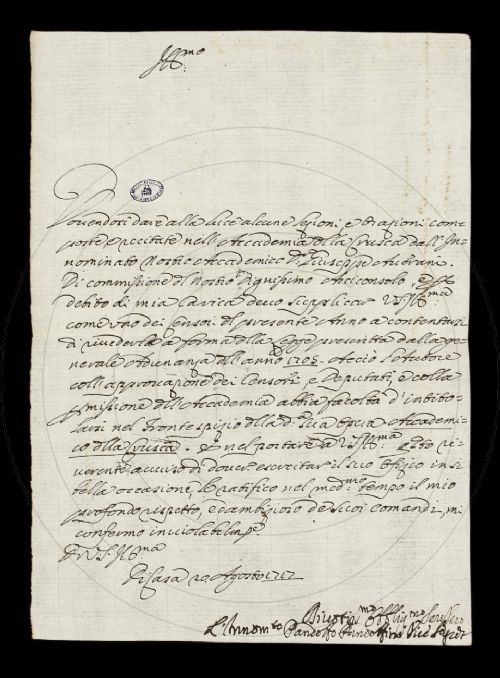 Ill:mo
Dovendosi dare alla luce alcune Lezioni, e Orazioni com=
poste e recitate nell'Accademia della Crusca dall'In=
nominato Nostro Accademico D.r Giuseppe Averani.
Di commissione del Nostro Dignissimo Arciconsolo, e p
debito di mia Carica devo supplicar V.S. Ill:ma
come uno dei Censori del presente Anno a contentarsi
di rivederla a forma della legge prescritta dalla ge=
nerale Adunanza dell'anno 1705. Acciò l'Autore
coll'approvazione dei Censori, e Deputati, e colla
pmissione dell'Accademia abbia facoltà d'intito=
larsi nel frontespizio della d.a sua opera Accademi=
co della Crusca. E nel portare a V.S. Ill:ma q.to ri=
verente avviso di dover esercitar il suo Ofizio in si
bella occasione, le ratifico nel med:mo tempo il mio
profondo rispetto, e ambizioso de suoi comandi, mi
confermo inviolabilm.e
D V.S. Ill:ma
Di Casa 20 Agosto 1717
Divotis:mo Obblig:mo Ser.e Vero
L'Innom:to Pandolfo Pandolfini Vice Segret